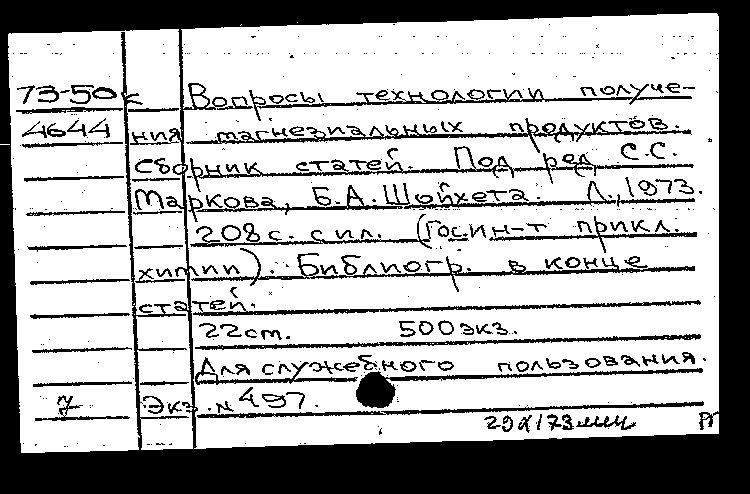 73-50к Вопросы технологии получе-
4644 ния магнезиальных продуктов.
Сборник статей. Под ред. С.С.
Маркова, Б.А. Шойхета. Л., 1973.
208с. с ил. (Гос.ин-т прикл.
химии). Библиогр. в конце
статей.
22см. 500экз.
Для служебного пользования.
7 Экз. № 497.